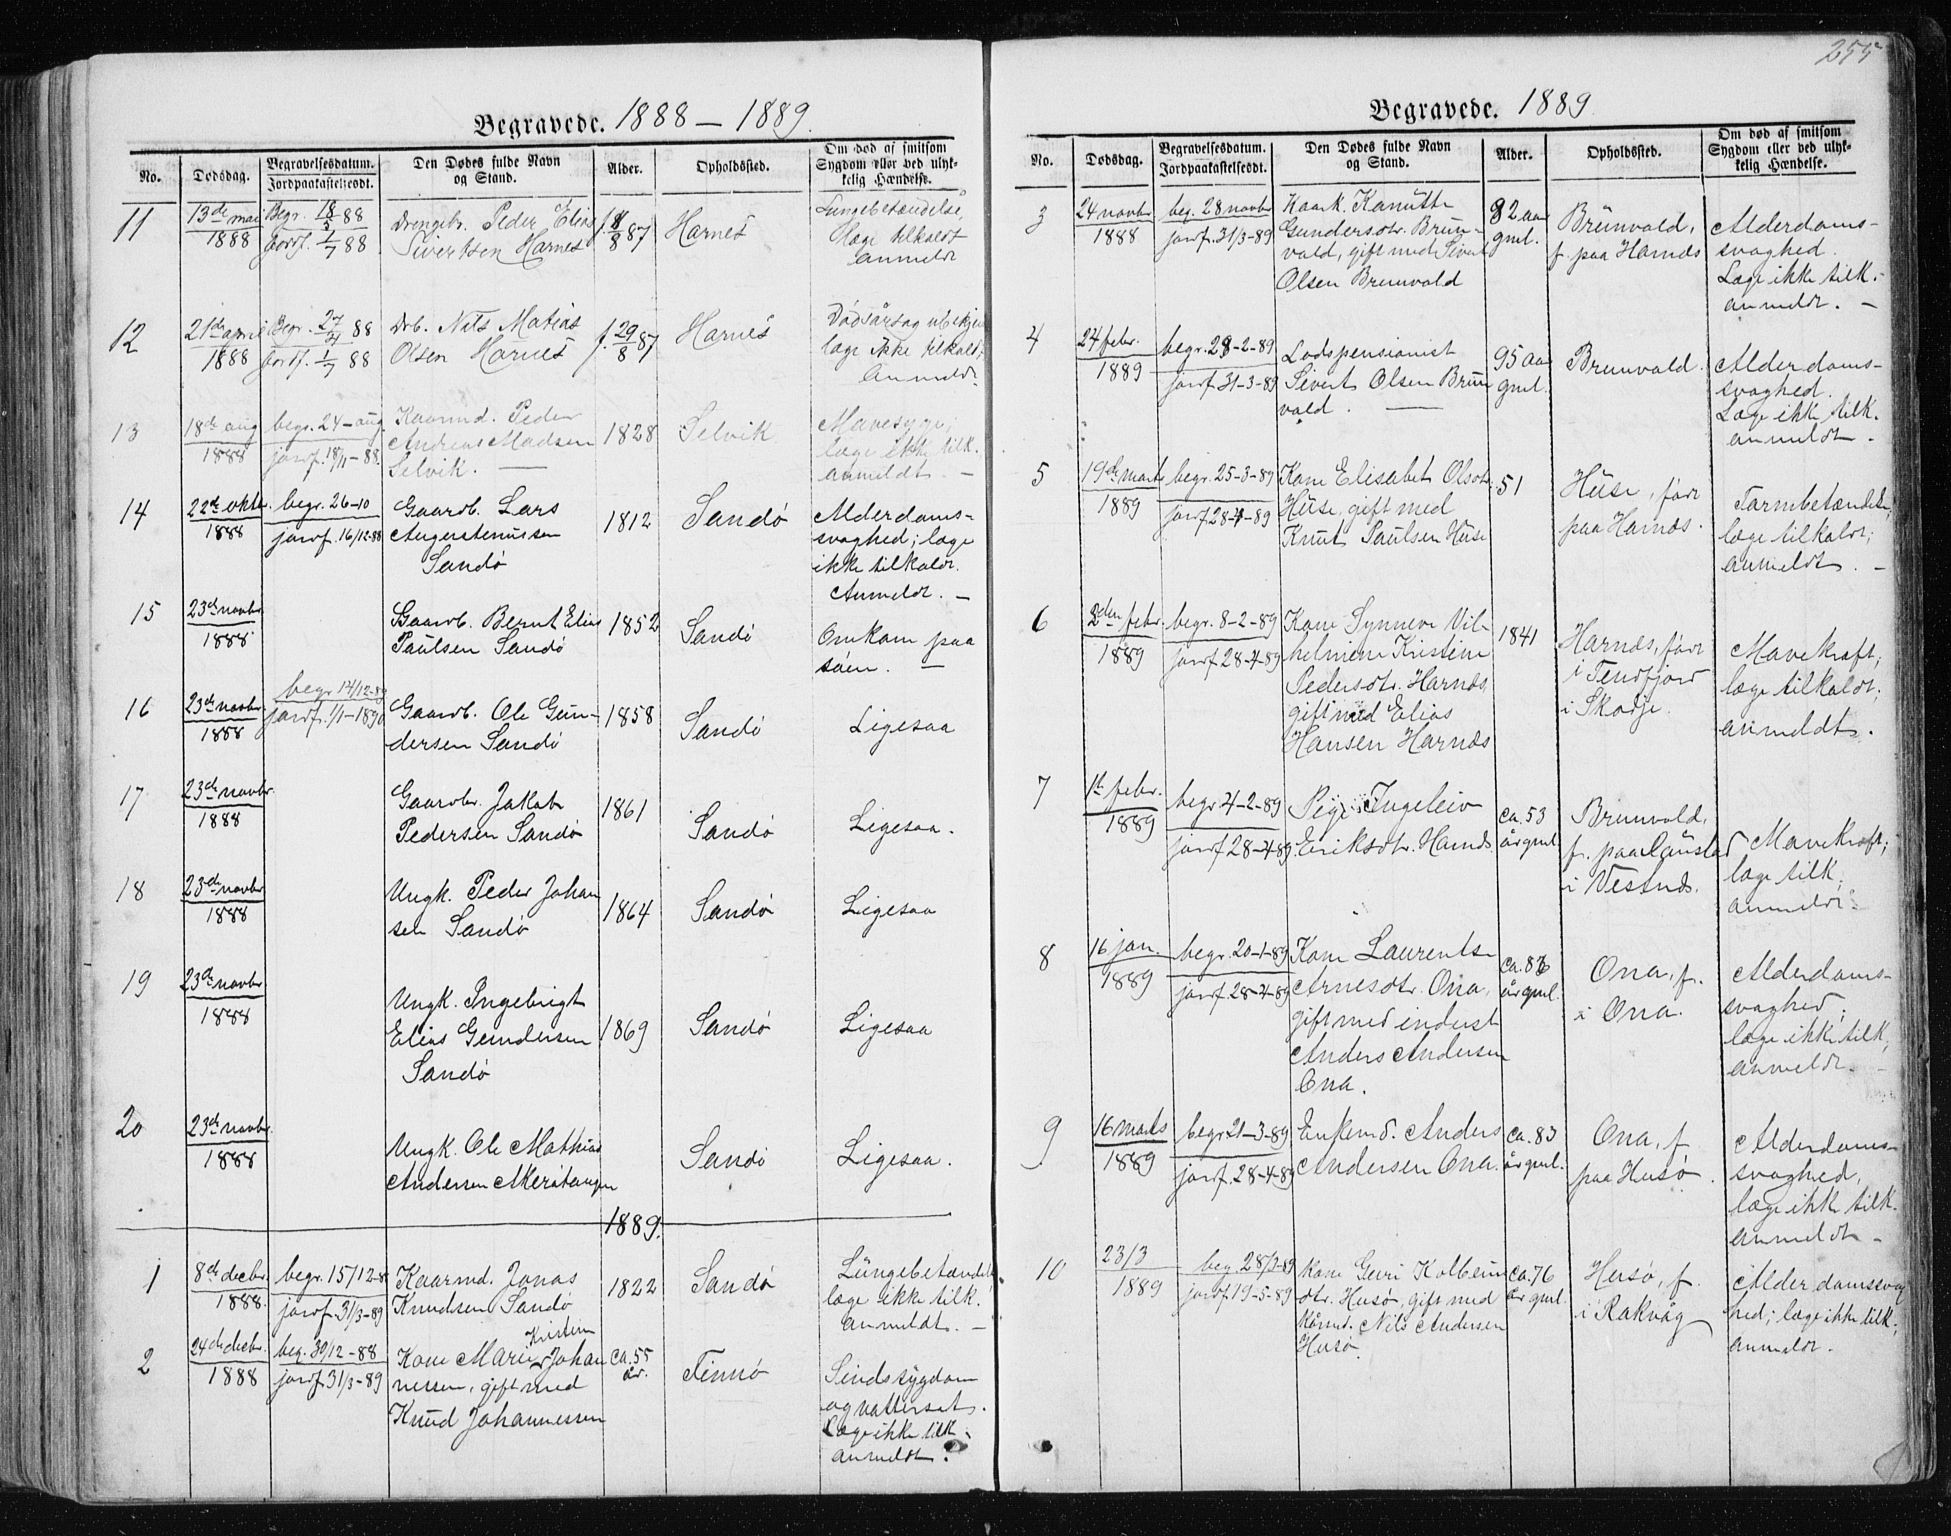 255
Begravede. 1888 – 1889.
No.
Dødsdag.
Begravelsesdatum.
Jordpaakastelsesdt.
Den Dødes fulde Navn
og Stand.
Alder.
Opholdssted.
Om død af smitsom
Sygdom eller ved ulyk-
kelig Hændelse.
11
13de mai
1888
Begr. 18/5 88
Jordf. 1/7 88
Drengeb. Peder Elias
Sivertsen Harnes
87
Harnes
Lungebetændelse,
læge tilkaldt
anmeldt
12
21de april
1888
Begr. 27/4 88
Jordf. 1/7 88
Drb. Nils Matias
Olsen Harnes
f. 29/8 87
Harnes
Dødsårsag ubekjen
læge ikke tilkaldt,
Anmeldt.
13
18de aug
1888
begr. 24–aug
jordf. 18/11–88
Kaarmd. Peder
Andreas Madsen
Selvik. —
1828
Selvik
Mavesyge,
læge ikke tilk.
anmeldt –
14
22de oktbr.
1888
begr. 26–10
jordf. 16/12–88
Gaardb. Lars
Augustenussen
Sandø
1812
Sandø
Alderdoms-
svaghed; læge
ikke tilkaldt.
Anmeldt. –
15
23de novbr
1888
Gaardb. Bernt Elias
Paulsen Sandø
1852
Sandø
Omkom paa
søen. —
16
23de novbr.
1888
begr 14/12–89
jordf. 1/1–1890
Gaardb. Ole Gun-
dersen Sandø
1858
Sandø
Ligesaa
17
23de novbr.
1888
Gaardbr. Jakob
Pedersen Sandø
1861
Sandø
Ligesaa.
18
23de novbr
1888
Ungk. Peder Johan
sen Sandø
1864
Sandø
Ligesaa
19
23de novbr
1888
Ungk. Ingebrigt
Elias Gundersen
Sandø
1869
Sandø
Ligesaa
20
23de novbr.
1888
Ungk. Ole Mathias
Andersen
Sandø
Ligesaa.
1889.
1
8de decbr.
1888.
begr. 15/12–8
jordf. 31/3–89
Kaarmd. Jonas
Knudsen Sandø
1822
Sandø
Lungebetændel
læge ikke tilk.
anmeldt. –
2
24de decbr.
1888
beg. 30/12–88
jordf 31/3–89
Kristine
Kone Marie Johan
nessen, gift med
Knud Johannessen
ca. 55
år.
Finnø
Sindssygdom
og vattersot.
Læge ikke tilk.
anmeldt.
Begravede. 1889
No.
Dødsdag.
Begravelsesdatum.
Jordpaakastelsesdt.
Den Dødes fulde Navn
og Stand.
Alder.
Opholdssted.
Om død af smitsom
Sygdom eller ved ulyk-
kelig Hændelse.
3
24 novbr
1888
beg. 28 novbr
jordf. 31/3–89
Kaark. Kanutte
Gundersdtr. Brun-
vold, gift med Sivert
Olsen Brunvold
82 aar
gml.
Brunvold,
f. paa Harnæs
Alderdoms-
svaghed.
Læge ikke tilk.
anmeldt. –
4
24 febr.
1889
begr. 28–2–89
jordf. 31–3–89
Lodspensionist
Sivert Olsen Brun
vold. —
95 aar
gml.
Brunvold.
Alderdoms-
svaghed.
Læge ikke tilk.
anmeldt.
5
19de marts
1889
begr. 25–3–89
jordf 28–4–89
Kone Elisabet Olsdtr.
Huse, gift med
Knut Paulsen Huse
51
Huse, født
paa Harnæs.
Tarmbetændelse;
læge tilkaldt;
anmeldt. –
6
2den febr.
1889
begr. 8–2–89
jordf 28–4–89
Kone Synneve Vil-
helmene Kristine
Pedersdtr. Harnæs
gift med Elias
Hansen Harnæs
1841
Harnæs, født
i Tendfjord
i Skodje.
Mavekræft;
læge tilkaldt;
anmeldt.
7
1ste febr.
1889
begr 4–2–89
jordf 28–4–89
Pige Ingeleiv
Eriksdtr. Harnæs.
ca. 53
år gml.
Brunvold,
f. paa
i Vestnæs.
Mavekræft;
læge tilk;
anmeldt.
8
16 jan.
1889
begr. 20–1–89
jordf. 28–4–89
Kone Laurentse
Arnesdtr. Ona,
gift med inderst
Anders Andersen
Ona.
ca. 86
år gml.
Ona, f.
i Ona.
Alderdoms-
svaghed;
læge ikke tilk,
anmeldt. –
9
16 marts
1889
begr 21–3–89
jordf. 28–4–89
Enkemd. Anders
Andersen Ona.
ca. 83
år gml.
Ona, f.
paa Husø.
Alderdoms-
svaghed,
læge ikke tilk.
anmeldt –
10
23/3
1889
beg 28/3–89
jordf 19–5–89
Kone Guri Kolbein
dtr. Husø, gift med
Kårmd. Nils Andersen
Husø.
ca. 76
år gml.
Husø, f.
i Rakvåg
Alderdomssvag
hed; læge ikke tilk;
anmeldt.